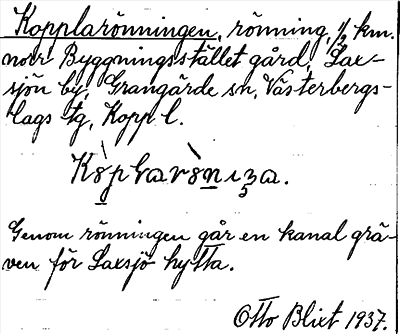 Kopplarönningen, rönning, ½ km.
norr Byggningsstället gård, Lax-
sjön by, Grangärde sn, Västerbergs-
lags tg, Kopp l.
Genom rönningen går en kanal grä-
ven för Laxsjö hytta.
Otto Blixt 1937.